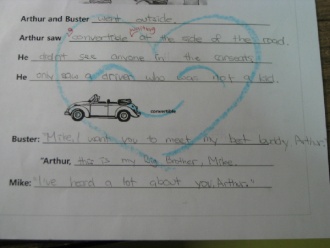 Arthur and Buster went outside.
Arthur saw a convertible parking at the side of the road.
He didn't see anyone in the
He only saw a driver who was not a kid.
convertible
Buster: "Mike, I want you to meet my best buddy Arthur."
"Arthur, this is my big brother, Mike.
Mike: "I've heard a lot about you, Arthur."